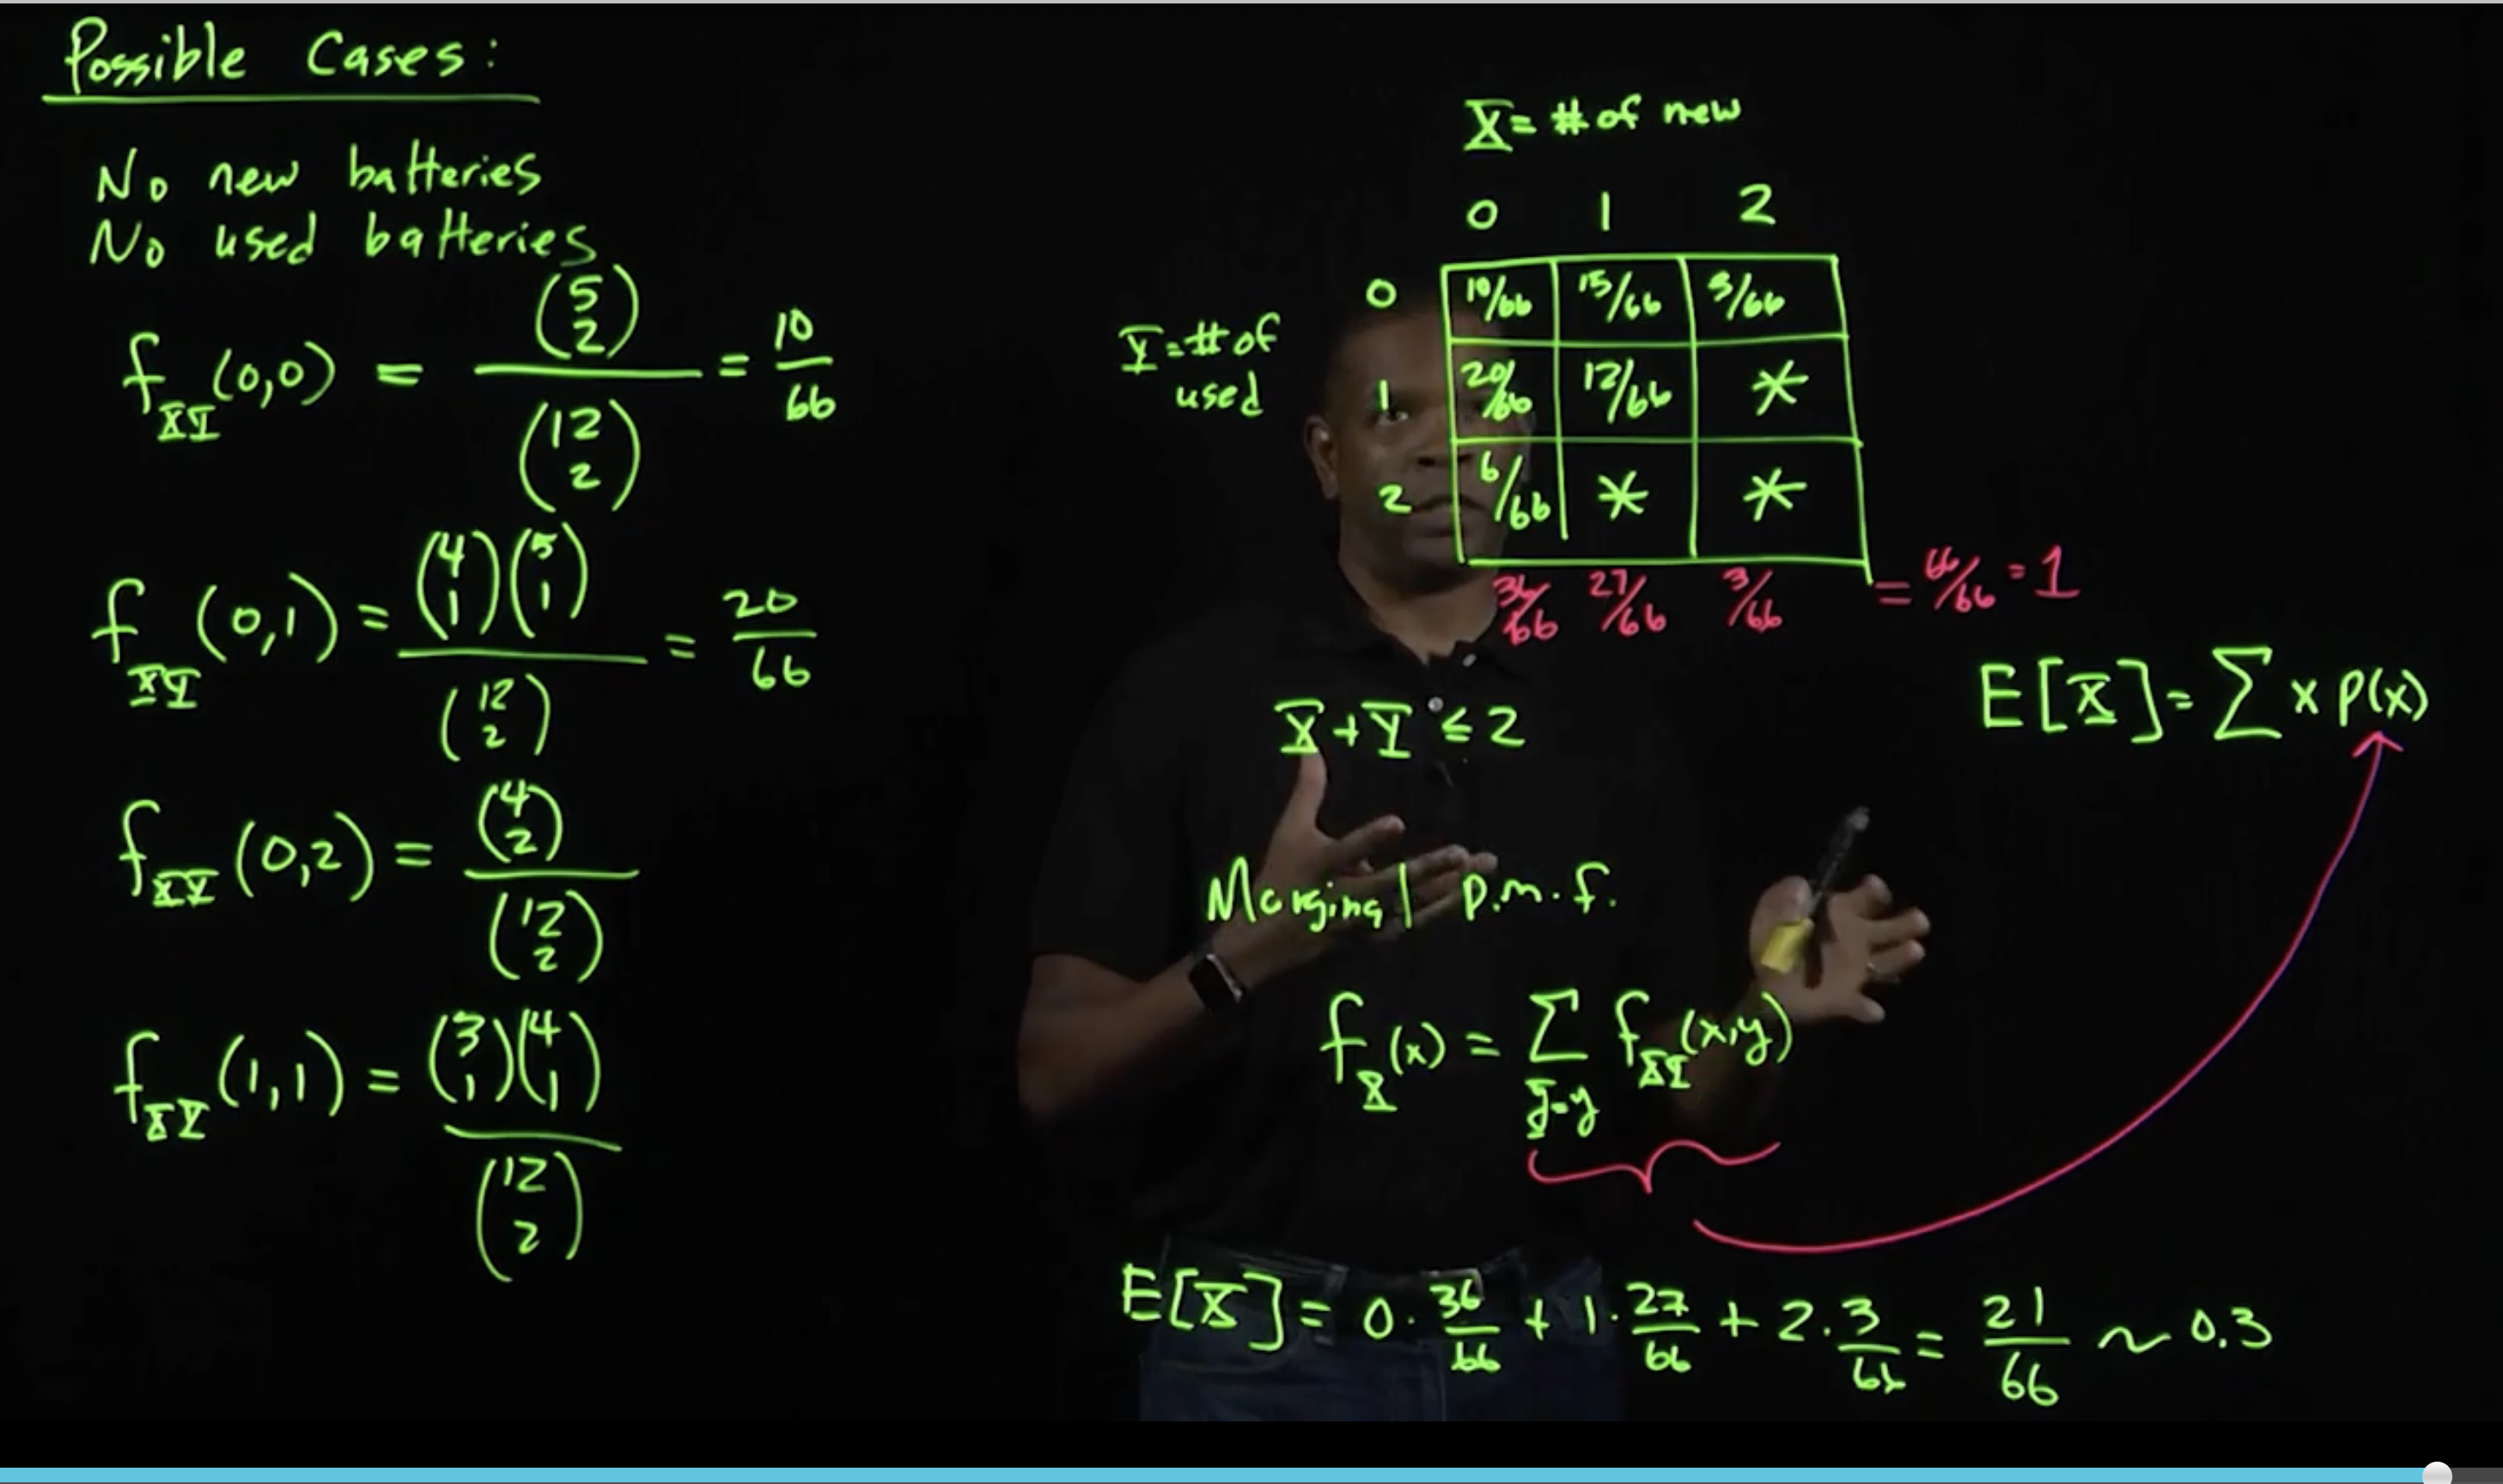 Possible Cases:
No new batteries
No used batteries
f_XY(0,0) = (5 2) / (12 2) = 10/66
f_XY(0,1) = (4 1)(5 1) / (12 2) = 20/66
f_XY(0,2) = (4 2) / (12 2)
f_XY(1,1) = (3 1)(4 1) / (12 2)
X = # of new
0 1 2
Y = # of used
0 10/66 15/66 3/66
1 20/66 12/66 *
2 6/66 * *
36/66 27/66 3/66 = 66/66 = 1
E[X] = Σ x p(x)
X + Y ≤ 2
Marginal p.m.f.
f_X(x) = Σ_{Y=y} f_XY(x,y)
E[X] = 0 · 36/66 + 1 · 27/66 + 2 · 3/66 = 21/66 ~ 0.3